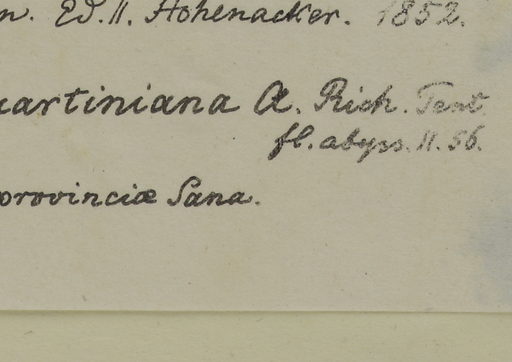 n. Ed. II. Hohenacker. 1852.
uartiniana A. Rich. Tent.
fl. abyss. II. 56.
provinciæ Sana.